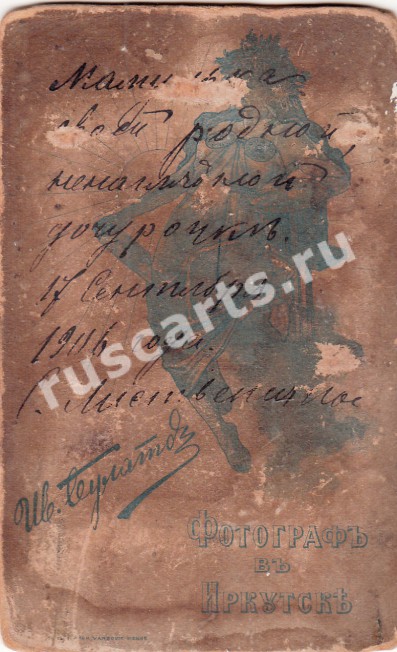 Мамочка
своей родной,
ненаглядной
дочурочкѣ.
17 Сентября
1916 года.
с. Лиственичное
Ив. Булатовъ
Фотографъ
въ
Иркутскѣ
ruscarts.ru